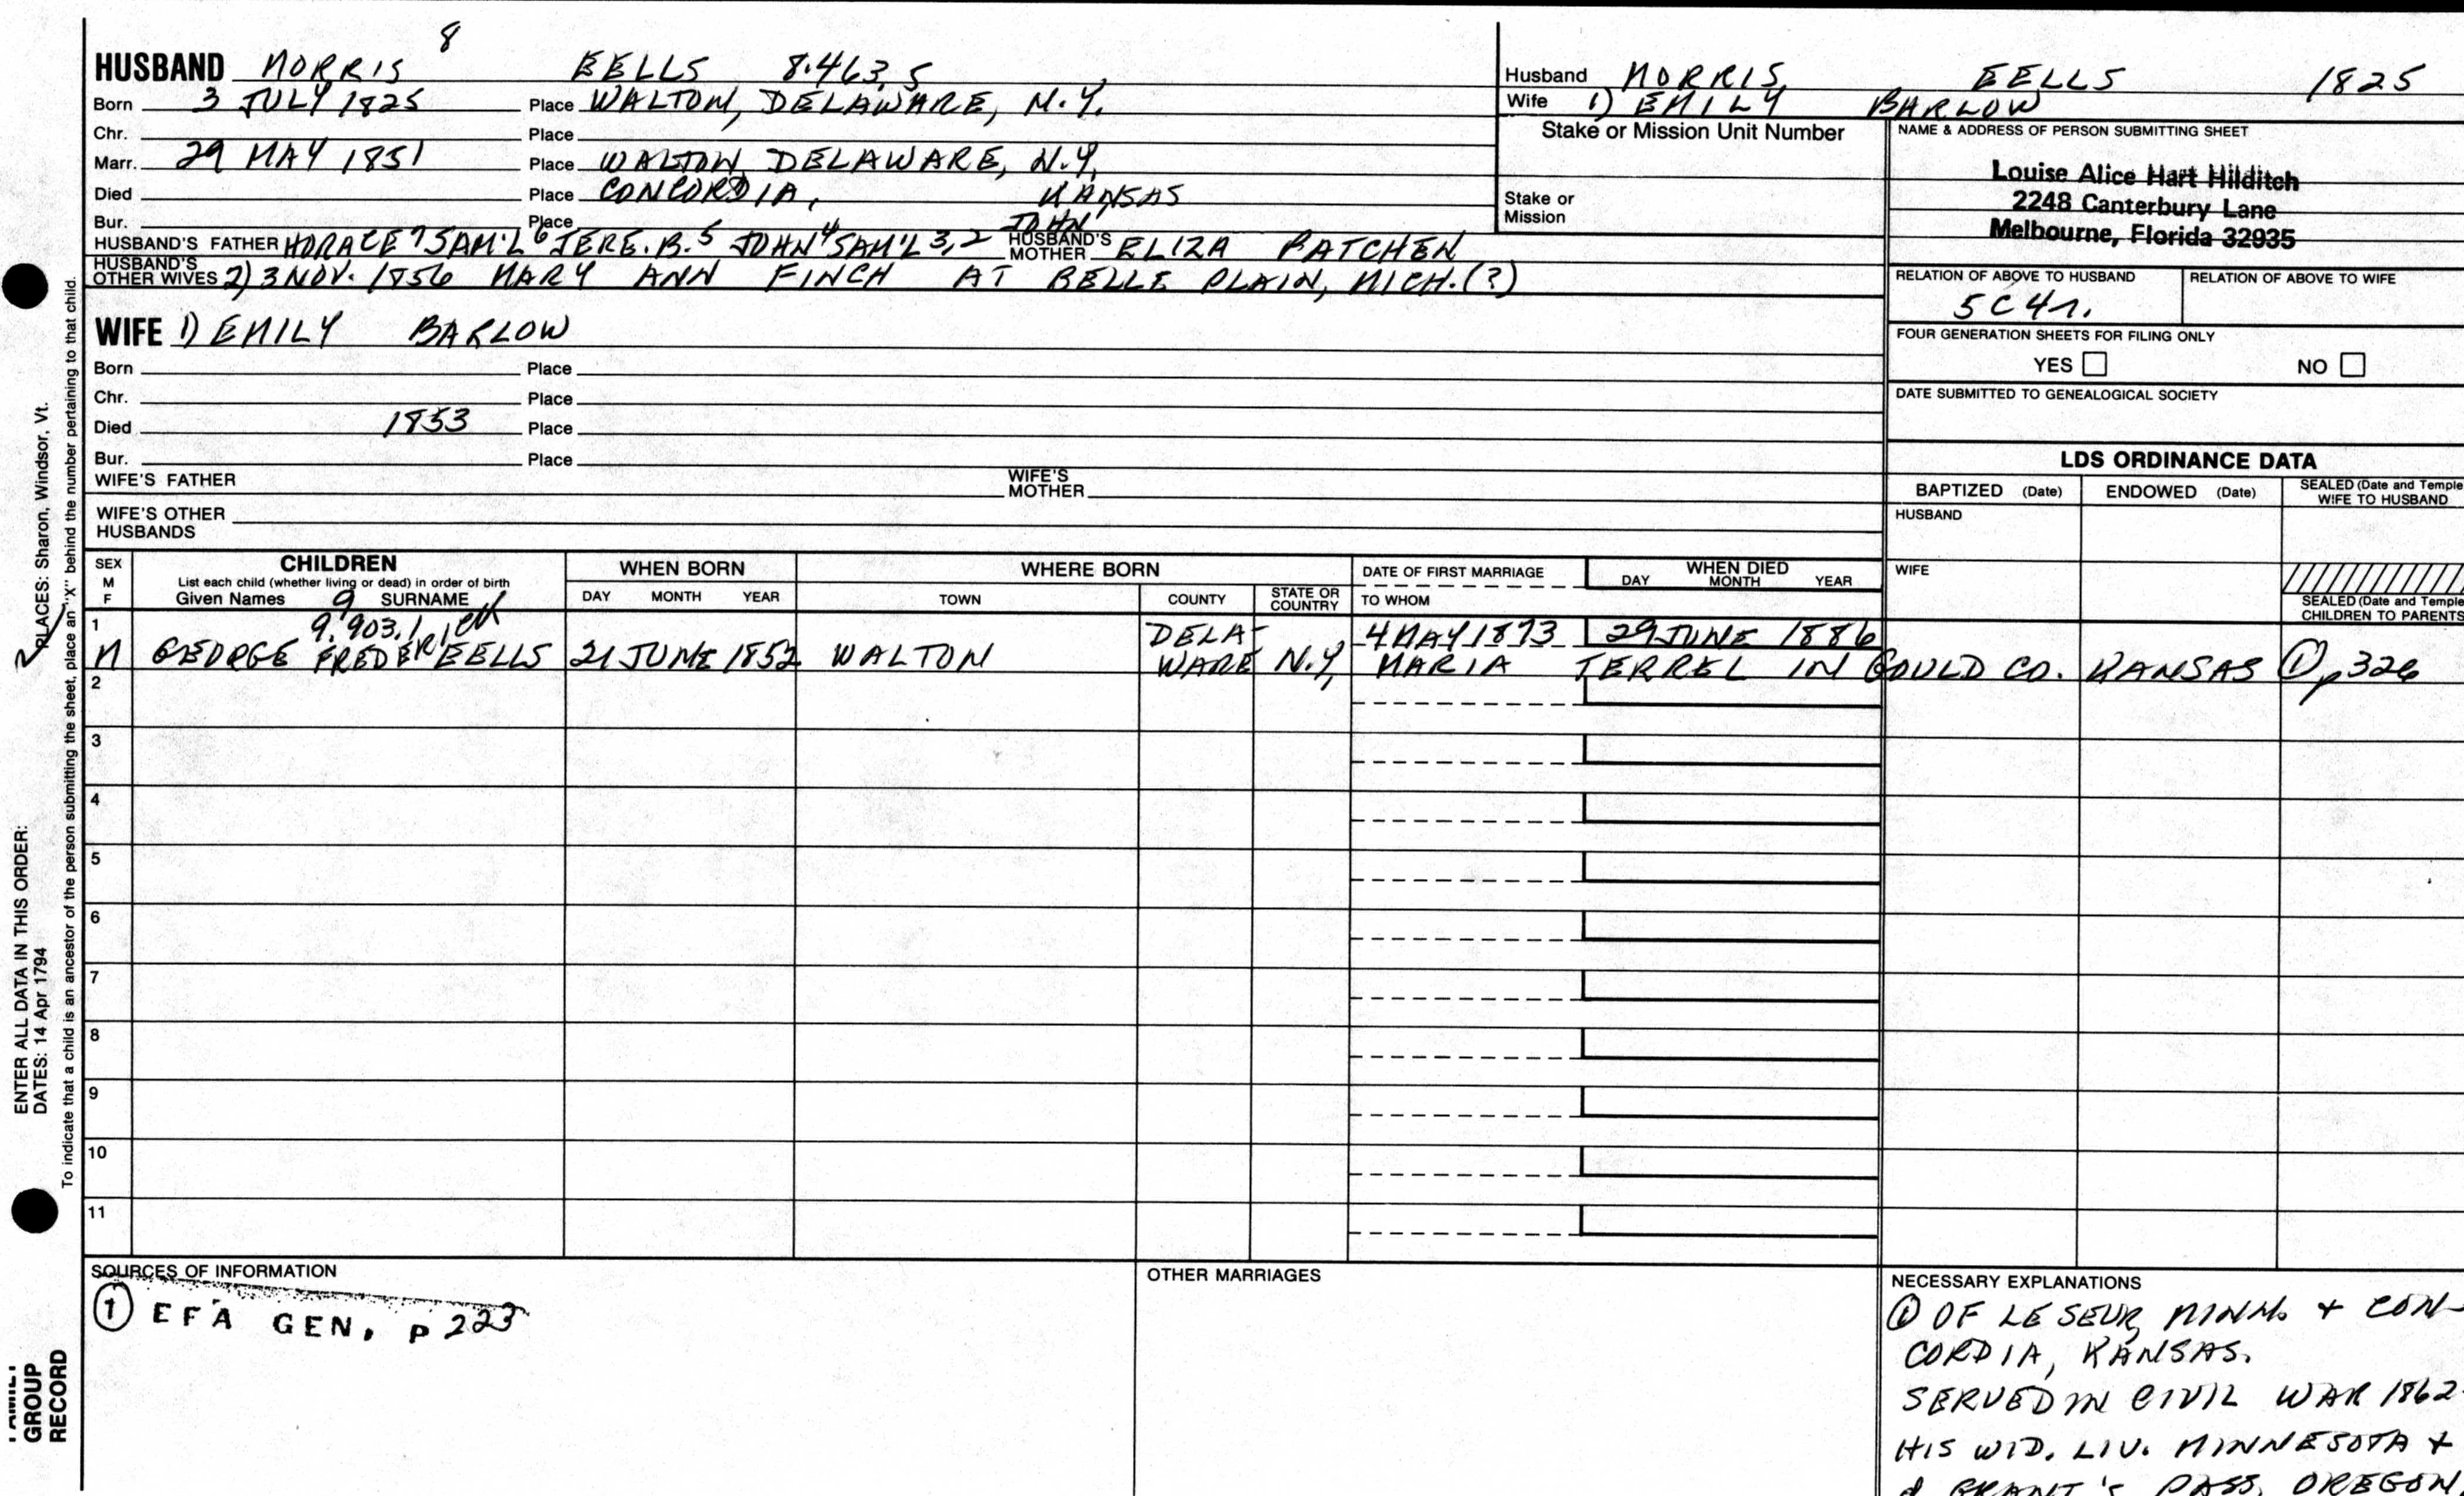 8
HUSBAND NORRIS EELLS 8.463,5
Born 3 JULY 1825 Place WALTON, DELAWARE, N.Y.
Chr. Place
Marr. 29 MAY 1851 Place WALTON, DELAWARE, N.Y.
Died Place CONCORDIA, KANSAS
Bur. Place
HUSBAND'S FATHER HORACE 7 SAM'L 6 JERE. B. 5 JOHN 4 SAM'L 3,2 JOHN 1 HUSBAND'S MOTHER ELIZA PATCHEN
HUSBAND'S OTHER WIVES 2) 3 NOV. 1856 MARY ANN FINCH AT BELLE PLAIN, MICH. (?)
WIFE 1) EMILY BARLOW
Born Place
Chr. Place
Died 1853 Place
Bur. Place
WIFE'S FATHER WIFE'S MOTHER
WIFE'S OTHER HUSBANDS
Husband NORRIS, EELLS 1825
Wife 1) EMILY BARLOW
Stake or Mission Unit Number
Stake or Mission
NAME & ADDRESS OF PERSON SUBMITTING SHEET
Louise Alice Hart Hilditch
2248 Canterbury Lane
Melbourne, Florida 32935
RELATION OF ABOVE TO HUSBAND RELATION OF ABOVE TO WIFE
5C4r.
FOUR GENERATION SHEETS FOR FILING ONLY
YES NO
DATE SUBMITTED TO GENEALOGICAL SOCIETY
LDS ORDINANCE DATA
BAPTIZED (Date) ENDOWED (Date) SEALED (Date and Temple WIFE TO HUSBAND
HUSBAND
WIFE
SEALED (Date and Temple CHILDREN TO PARENTS
SEX M F CHILDREN WHEN BORN WHERE BORN DATE OF FIRST MARRIAGE WHEN DIED
List each child (whether living or dead) in order of birth
Given Names 9 SURNAME DAY MONTH YEAR TOWN COUNTY STATE OR COUNTRY TO WHOM DAY MONTH YEAR
1 9.903.1 DELA- 4 MAY 1873 29 JUNE 1886
M GEORGE FREDERICK EELLS 21 JUNE 1852 WALTON WARE N.Y, MARIA TERREL IN GOULD CO. KANSAS ① p 326
2
3
4
5
6
7
8
9
10
11
SOURCES OF INFORMATION
① EFA GEN. P 223
OTHER MARRIAGES
NECESSARY EXPLANATIONS
① OF LE SEUR, MINN. + CON-
CORDIA, KANSAS.
SERVED IN CIVIL WAR 1862-
HIS WID. LIV. MINNESOTA +
d GRANT'S PASS, OREGON
ENTER ALL DATA IN THIS ORDER:
DATES: 14 Apr 1794 PLACES: Sharon, Windsor, Vt.
To indicate that a child is an ancestor of the person submitting the sheet, place an "X" behind the number pertaining to that child.
FAMILY
GROUP
RECORD